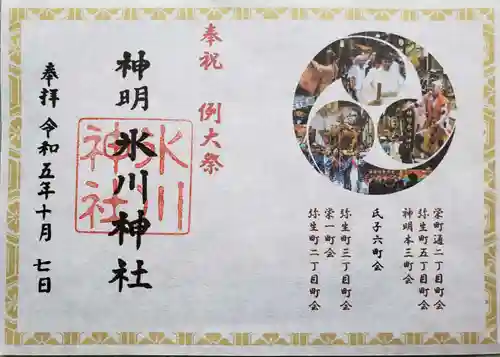 奉祝 例大祭
栄町通二丁目町会
弥生町五丁目町会
神明本三町会
氏子六町会
弥生町三丁目町会
栄一町会
弥生町二丁目町会
神明 氷川神社
氷川
神社
奉拝 令和五年十月 七日